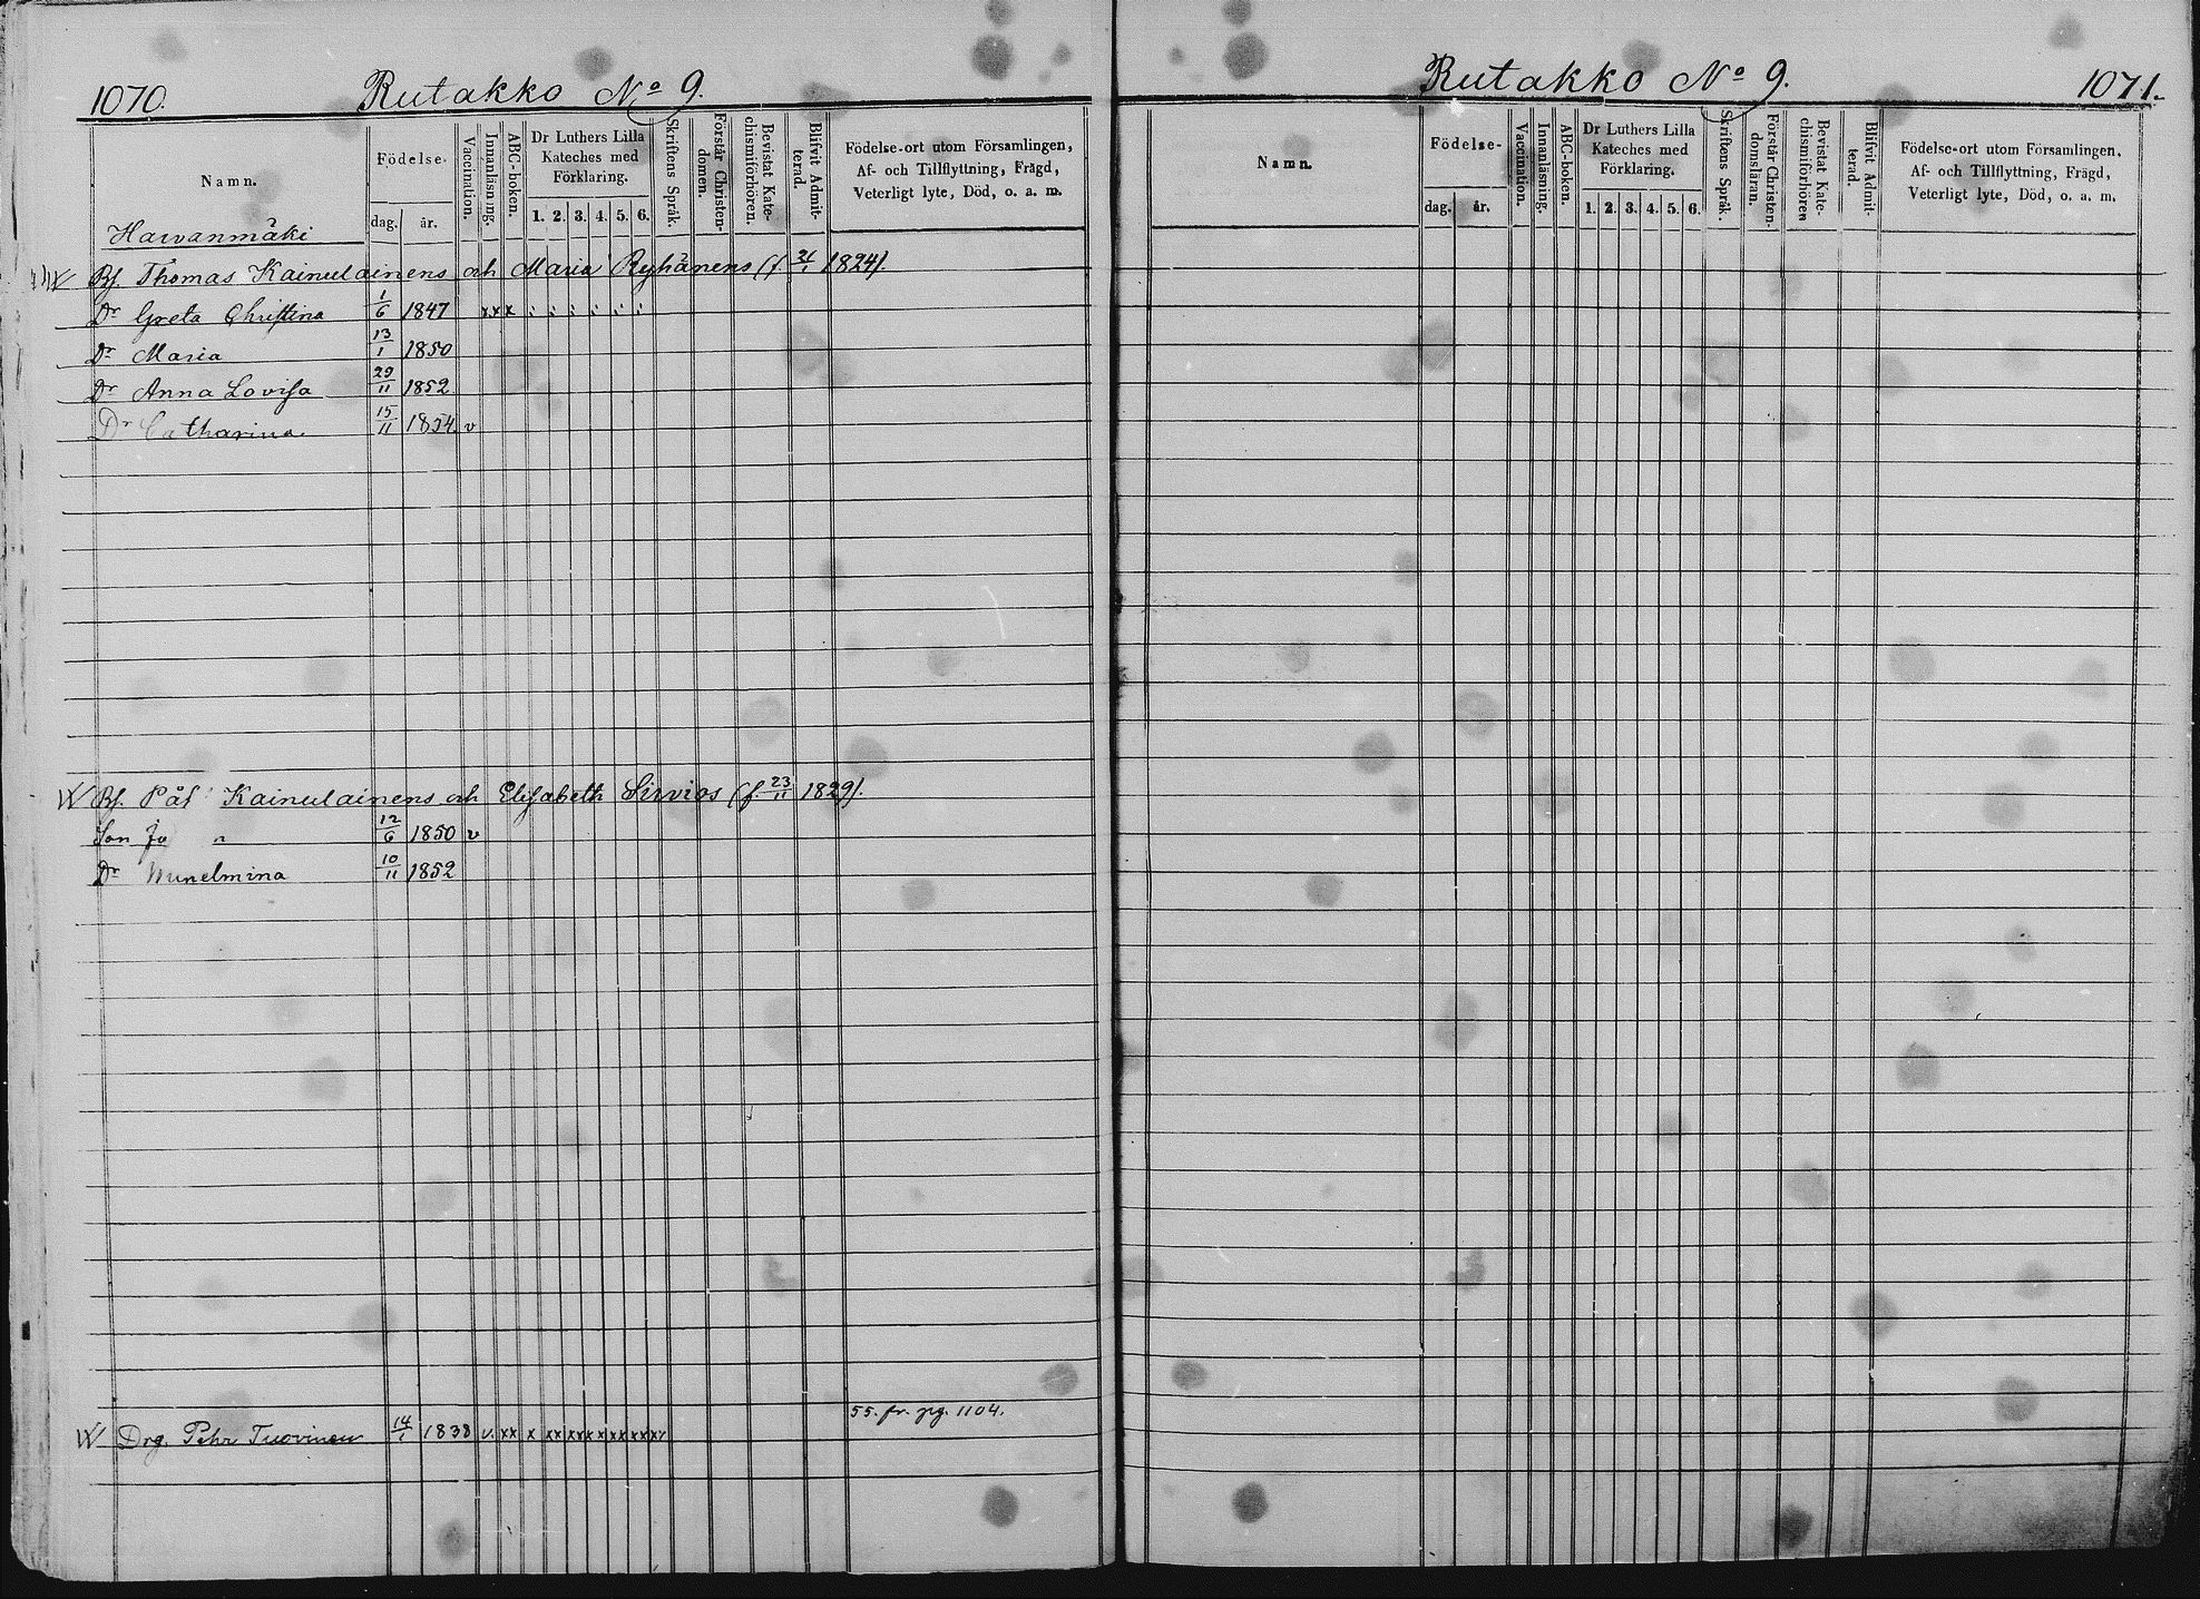 1070. Rutakko No 9.
Namn.
Födelse-
dag. år.
Vaccination.
Innanläsning.
ABC-boken.
Dr Luthers Lilla
Kateches med
Förklaring.
1. 2. 3. 4. 5. 6.
Skriftens Språk.
Förstår Christen-
domen.
Bevistat Kate-
chismiförhören.
Blifvit Admit-
terad.
Födelse-ort utom Församlingen,
Af- och Tillflyttning, Frägd,
Veterligt lyte, Död, o. a. m.
Harvanmäki
Bf. Thomas Kainulainens och Maria Ryhänens (f. 21/1 1824).
Dr Greta Christina 1/6 1847 x x x
Dr Maria 13/1 1850
Dr Anna Lovisa 29/11 1852
Dr Catharina. 15/11 1854. v
Bf. Pål Kainulainens och Elisabeth Sirviös (f. 23/11 1829).
Son 12/6 1850 v
Dr 10/11 1852
55. fr. pg. 1104.
Drg. Pehr Tuovinen 14/1 1838 v. xx x xx xx x x xx xx xx
Rutakko No 9. 1071.
Namn.
Födelse-
dag. år.
Vaccination.
Innanläsning.
ABC-boken.
Dr Luthers Lilla
Kateches med
Förklaring.
1. 2. 3. 4. 5. 6.
Skriftens Språk.
Förstår Christen-
domsläran.
Bevistat Kate-
chismiförhören
Blifvit Admit-
terad.
Födelse-ort utom Församlingen,
Af- och Tillflyttning, Frägd,
Veterligt lyte, Död, o. a. m.